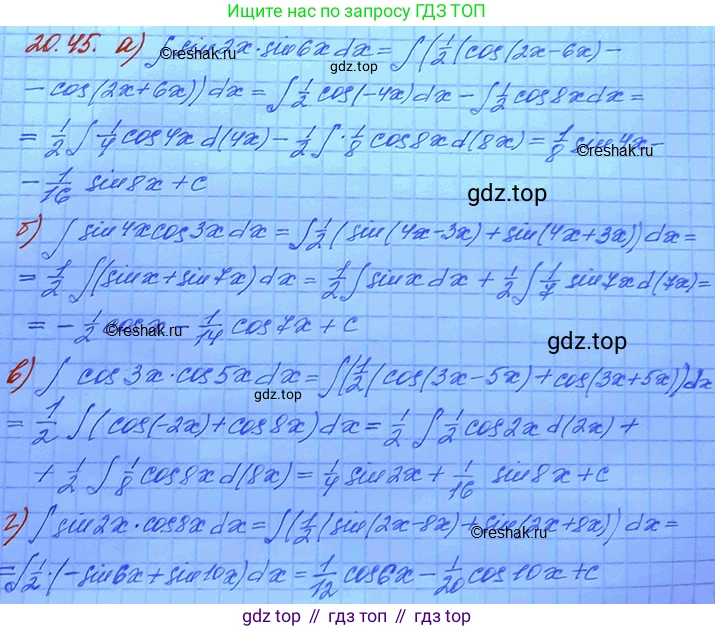 Ищите нас по запросу ГДЗ ТОП
20.45. а) ∫ sin2x·sin6x dx = ∫(1/2(cos(2x-6x) -
gdz.top
- cos(2x+6x)) dx = ∫ 1/2 cos(-4x) dx - ∫ 1/2 cos8x dx =
= 1/2 ∫ 1/4 cos4x d(4x) - 1/2 ∫ · 1/8 cos8x d(8x) = 1/8 sin4x -
©reshak.ru
- 1/16 sin8x + c
gdz.top
б) ∫ sin4x cos3x dx = ∫ 1/2 (sin(4x-3x) + sin(4x+3x)) dx =
= 1/2 ∫ (sinx + sin7x) dx = 1/2 ∫ sinx dx + 1/2 ∫ 1/7 sin7x d(7x) =
= - 1/2 cosx - 1/14 cos7x + c
©reshak.ru
gdz.top
в) ∫ cos3x·cos5x dx = ∫(1/2(cos(3x-5x) + cos(3x+5x)) dx
gdz.top
= 1/2 ∫ (cos(-2x) + cos8x) dx = 1/2 ∫ 1/2 cos2x d(2x) +
+ 1/2 ∫ 1/8 cos8x d(8x) = 1/4 sin2x + 1/16 sin8x + c
г) ∫ sin2x·cos8x dx = ∫(1/2(sin(2x-8x) + sin(2x+8x)) dx =
©reshak.ru
= ∫ 1/2 · (-sin6x + sin10x) dx = 1/12 cos6x - 1/20 cos10x + c
gdz.top // гдз.top // гдз.топ